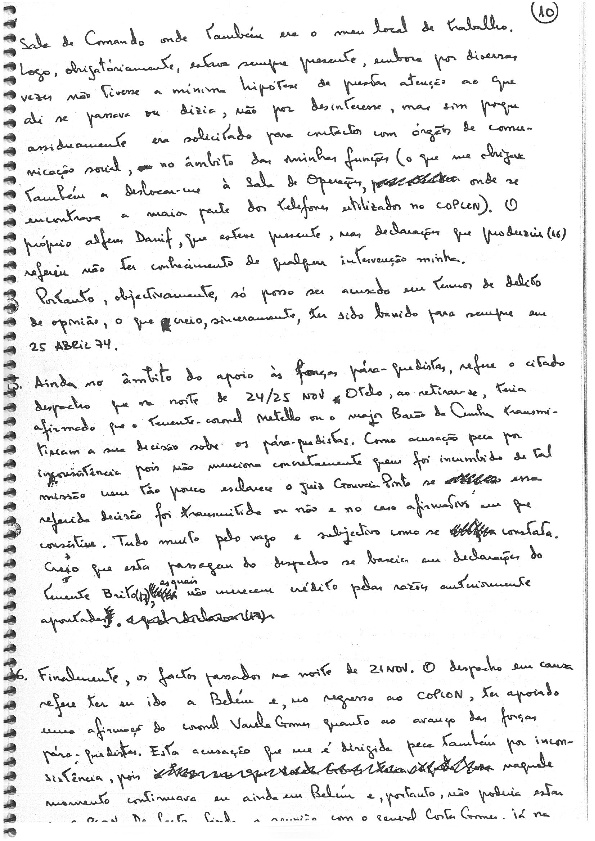 10
Sala de Comando onde também era o meu local de trabalho.
Logo, obrigatóriamente, estava sempre presente, embora por diversas
vezes não tivesse a mínima hipótese de prestar atenção ao que
ali se passava ou dizia, não por desinteresse, mas sim porque
assiduamente era solicitado para contactos com órgãos de comu-
nicação social, no âmbito das minhas funções (o que me obrigava
também a deslocar-me à Sala de Operações, onde se
encontrava a maior parte dos telefones utilizados no COPCON). O
próprio alferes Danif, que esteve presente, nas declarações que produziu (16)
referiu não ter conhecimento de qualquer intervenção minha.
Portanto, objectivamente, só posso ser acusado em termos de delito
de opinião, o que creio, sinceramente, ter sido banido para sempre em
25 ABRIL 74.
5. Ainda no âmbito do apoio às forças pára-quedistas, refere o citado
despacho que na noite de 24/25 NOV Otelo, ao retirar-se, teria
afirmado que o tenente-coronel Metello ou o major Barão da Cunha transmi-
tiram a sua decisão sobre os pára-quedistas. Como acusação peca por
inconsistência pois não menciona concretamente quem foi incumbido de tal
missão nem tão pouco esclarece o juiz Gouveia Pinto se essa
referida decisão foi transmitida ou não e no caso afirmativo em que
consistiu. Tudo muito pelo vago e subjectivo como se constata.
Creio que esta passagem do despacho se baseia em declarações do
tenente Brito (17), as quais não merecem crédito pelas razões anteriormente
apontadas.
6. Finalmente, os factos passados na noite de 21 NOV. O despacho em causa
refere ter eu ido a Belém e, no regresso ao COPCON, ter apoiado
uma afirmação do coronel Varela Gomes quanto ao avanço das forças
pára-quedistas. Esta acusação que me é dirigida peca também por incon-
sistência, pois naquele
momento continuava eu ainda em Belém e, portanto, não poderia estar
a reunião com o general Costa Gomes, já na